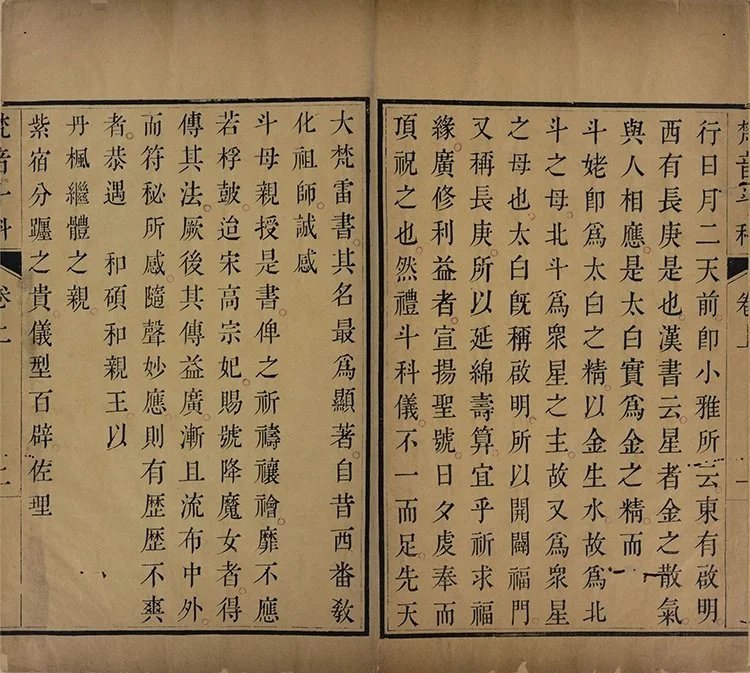 梵音斗科
卷上
行日月二天前卽小雅所云東有啟明
西有長庚是也漢書云星者金之散氣
與人相應是太白實爲金之精而
斗姥卽爲太白之精以金生水故爲北
斗之母北斗爲衆星之主故又爲衆星
之母也太白旣稱啟明所以開闢福門
又稱長庚所以延綿壽算宜乎祈求福
緣廣修利益者宣揚聖號日夕虔奉而
頂祝之也然禮斗科儀不一而足先天
大梵雷書其名最爲顯著自昔西番敎
化祖師誠感
斗母親授是書俾之祈禱禳禬靡不應
若桴鼓迨宋高宗妃賜號降魔女者得
傳其法厥後其傳益廣漸且流布中外
而符秘所感隨聲妙應則有歷歷不爽
者恭遇 和碩和親王以
丹楓繼體之親
紫宿分躔之貴儀型百辟佐理
梵音斗科
卷上
二